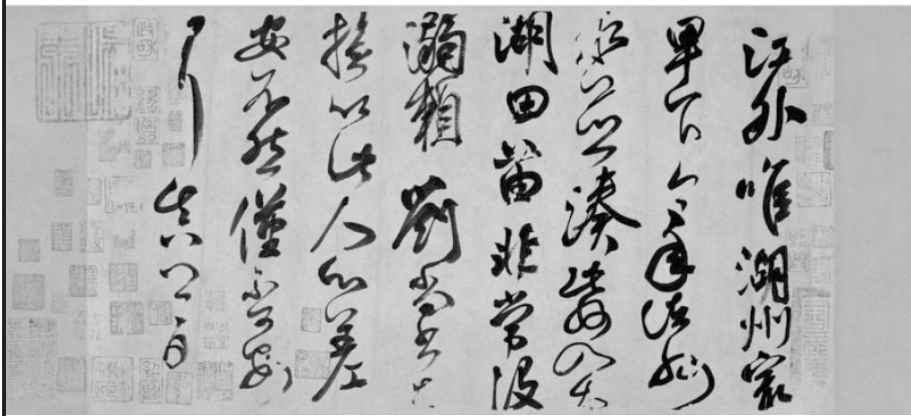 江外唯湖州最
卑下今年諸州
水並湊此州入太
湖田苗非常没
溺賴劉尚書与
拯以此人心差
安不然僅不可安
耳真卿白